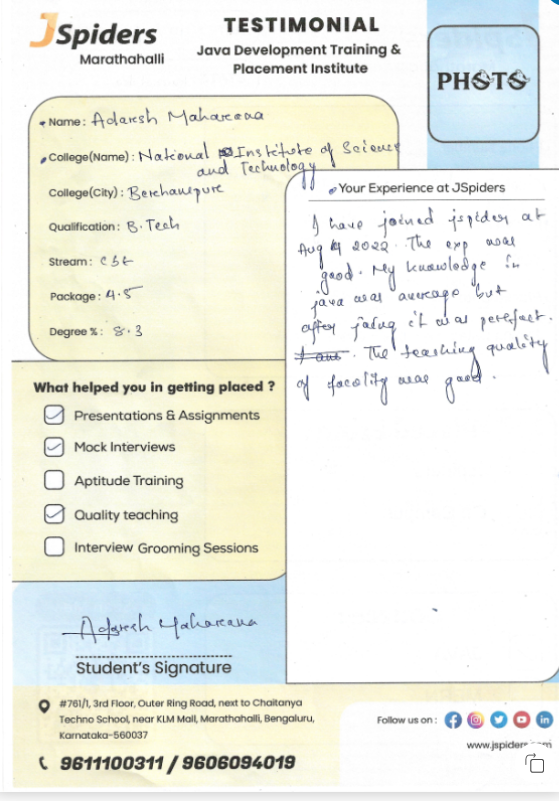 JSpiders
Marathahalli
TESTIMONIAL
Java Development Training &
Placement Institute
PHOTO
Name: Adaresh Maharana
College(Name): National Institute of Science
and Technology
College(City): Berehampure
Qualification: B.Tech
Stream: CSE
Package: 4.5
Degree %: 8.3
Your Experience at JSpiders
I have joined jspider at
Aug 2022. The exp was
good. My knowledge in
java was average but
after it was perefect.
The teaching quality
of facolity was good.
What helped you in getting placed ?
Presentations & Assignments
Mock Interviews
Aptitude Training
Quality teaching
Interview Grooming Sessions
Adaresh Maharana
Student's Signature
#761/1, 3rd Floor, Outer Ring Road, next to Chaitanya
Techno School, near KLM Mall, Marathahalli, Bengaluru,
Karnataka-560037
9611100311 / 9606094019
Follow us on :
www.jspiders.com